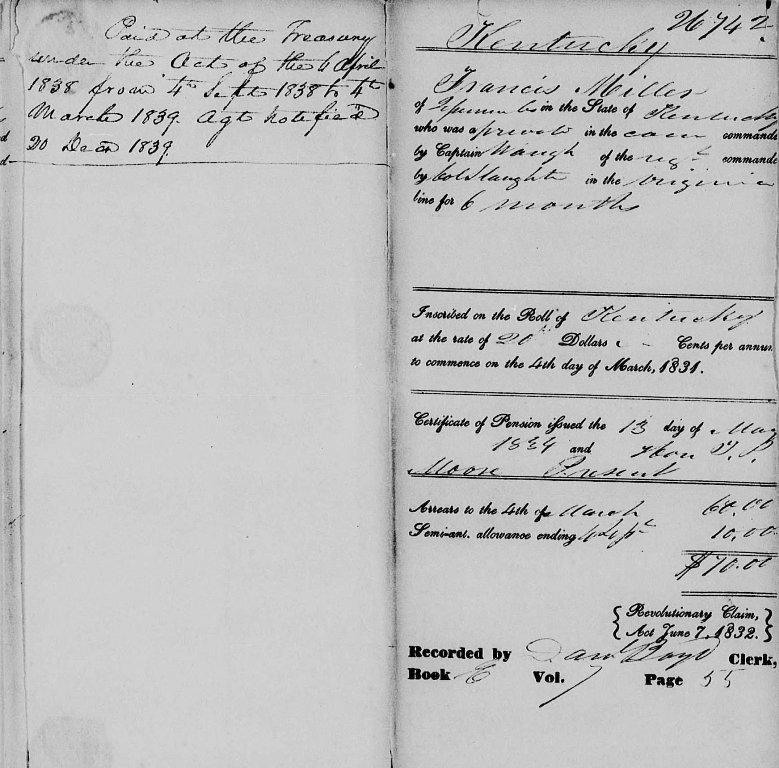 Paid at the Treasury
under the Act of the 6 April
1838 from 4th Sept 1838 to 4th
March 1839. Agt notified
20 Decr 1839.
26742.
Kentucky
Francis Miller
of in the State of Kentucky
who was a private in the commande
by Captain Waugh of the regt commande
by Col Slaughter in the Virginia
line for 6 months
Inscribed on the Roll of Kentucky
at the rate of 20 Dollars - Cents per annum
to commence on the 4th day of March, 1831.
Certificate of Pension issued the 13 day of May
1834 and Hon T. P.
Moore Present
Arrears to the 4th of March 60.00
Semi-anl. allowance ending 4 Sept 10.00
$70.00
Revolutionary Claim,
Act June 7, 1832.
Recorded by Danl Boyd Clerk,
Book E Vol. 7 Page 55